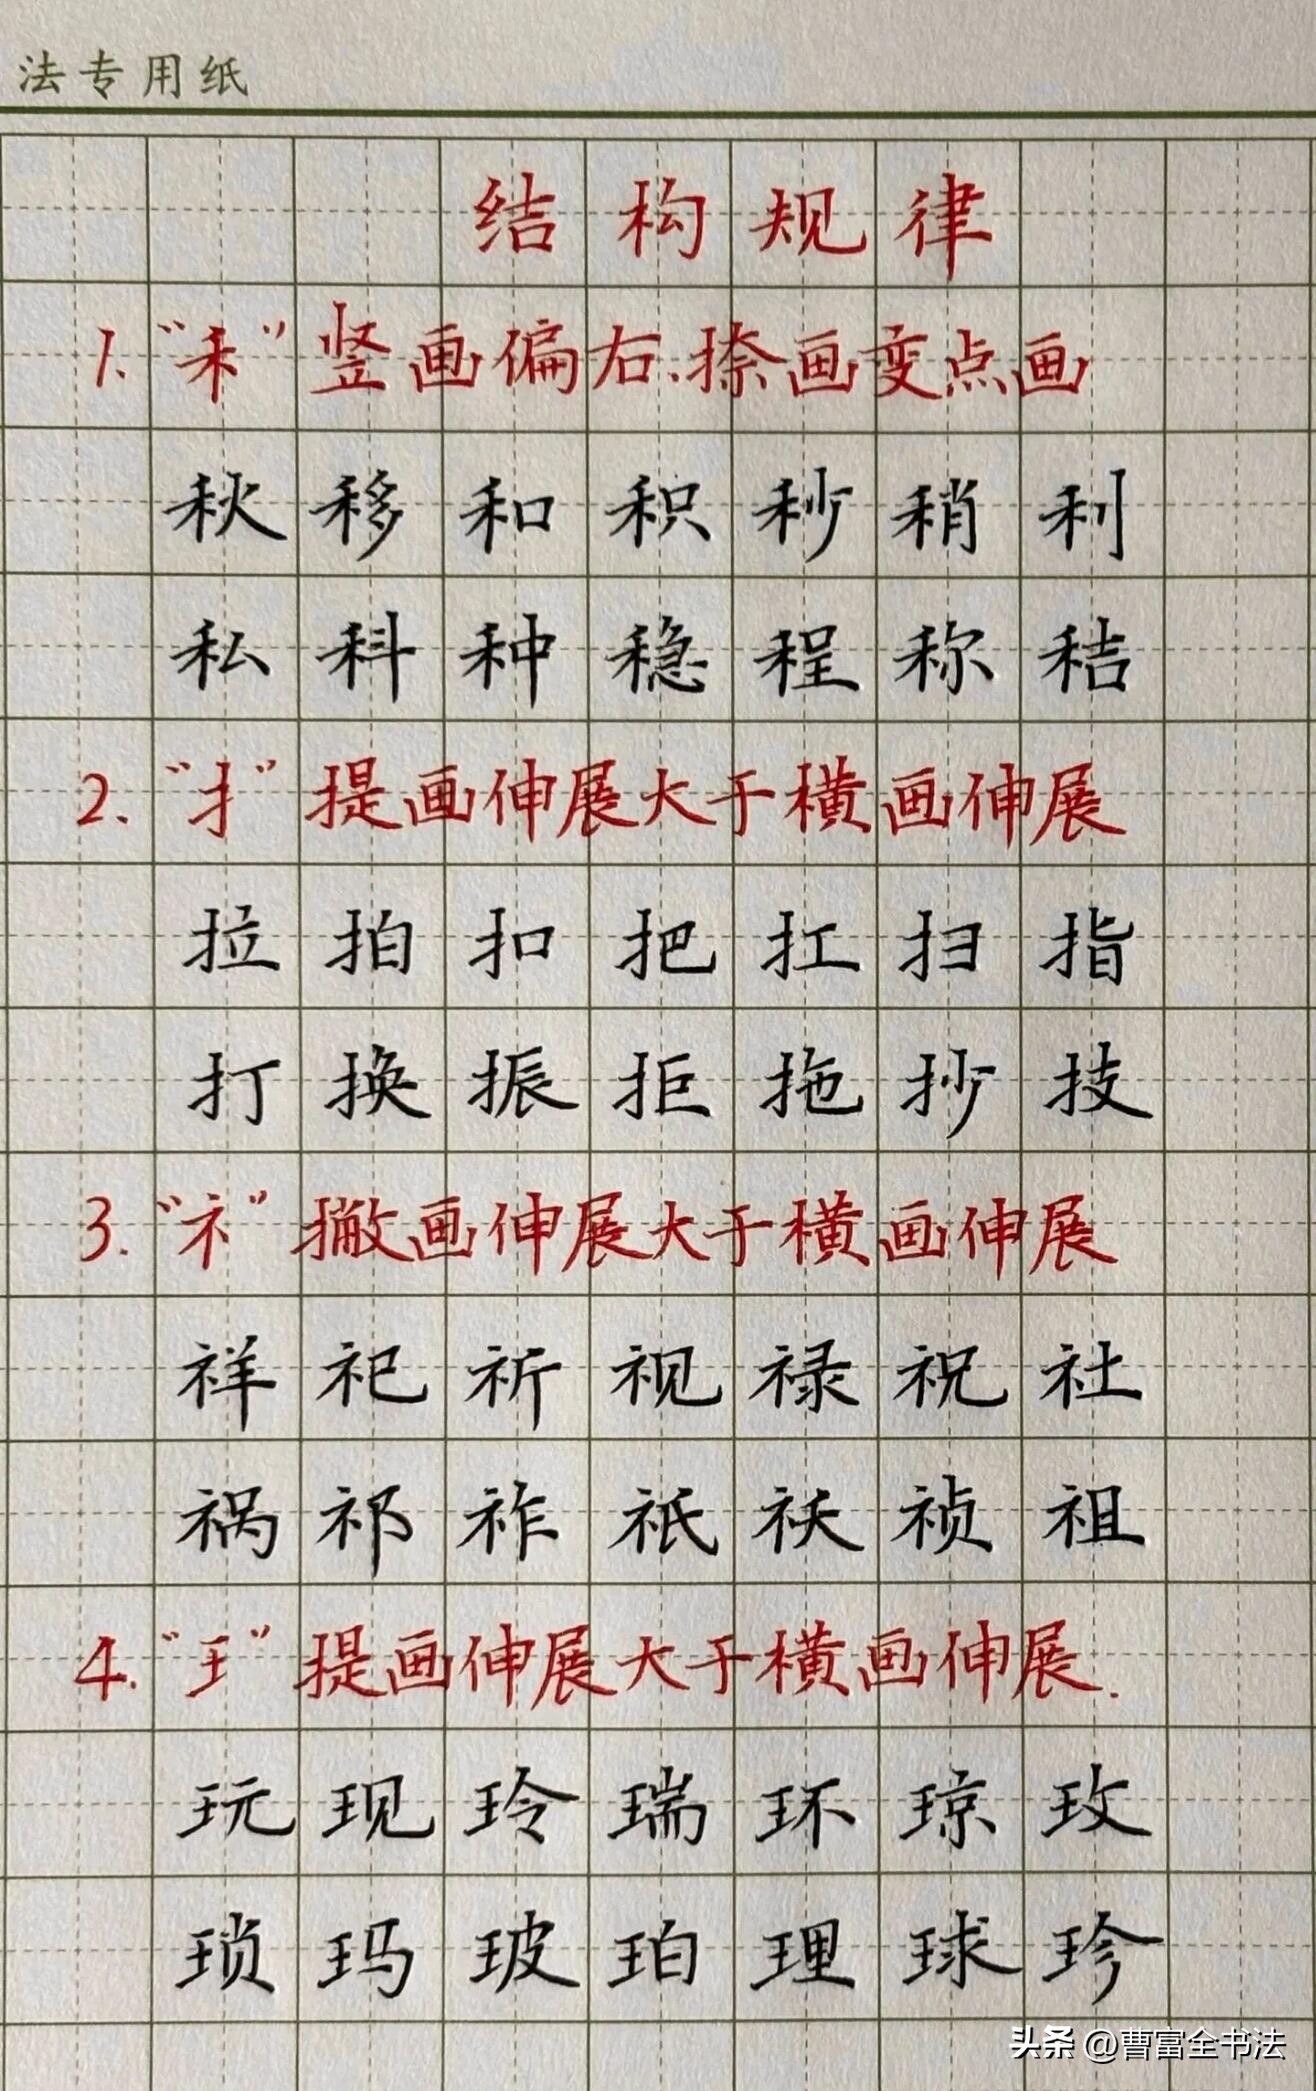 法专用纸
结构规律
1.“禾”竖画偏右、捺画变点画
秋移和积秒稍利
私科种稳程称秸
2.“扌”提画伸展大于横画伸展
拉拍扣把扛扫指
打换振拒拖抄技
3.“礻”撇画伸展大于横画伸展
祥祀祈视禄祝社
祸祁祚祇祆祯祖
4.“王”提画伸展大于横画伸展.
玩现玲瑞环琼玫
琐玛玻珀理球珍
头条 @曹富全书法